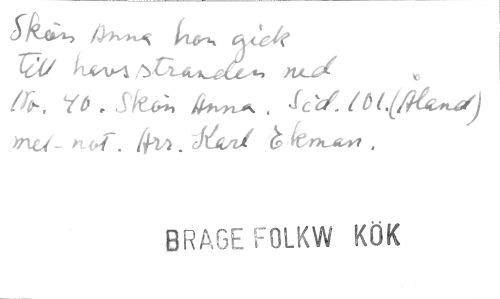 Skön Anna hon gick
till havsstranden ned
No. 40. Skön Anna. Sid. 101. (Åland)
mel-not. Arr. Karl Ekman.
BRAGE FOLKW KÖK